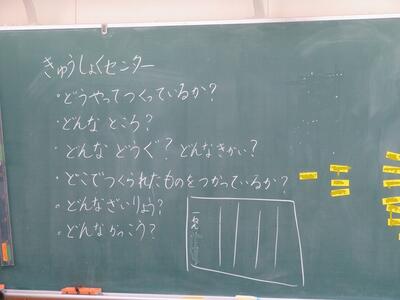 きゅうしょくセンター
・どうやってつくっているか？
・どんなところ？
・どんなどうぐ？どんなきかい？
・どこでつくられたものをつかっているか？
・どんなざいりょう？
・どんなかっこう？